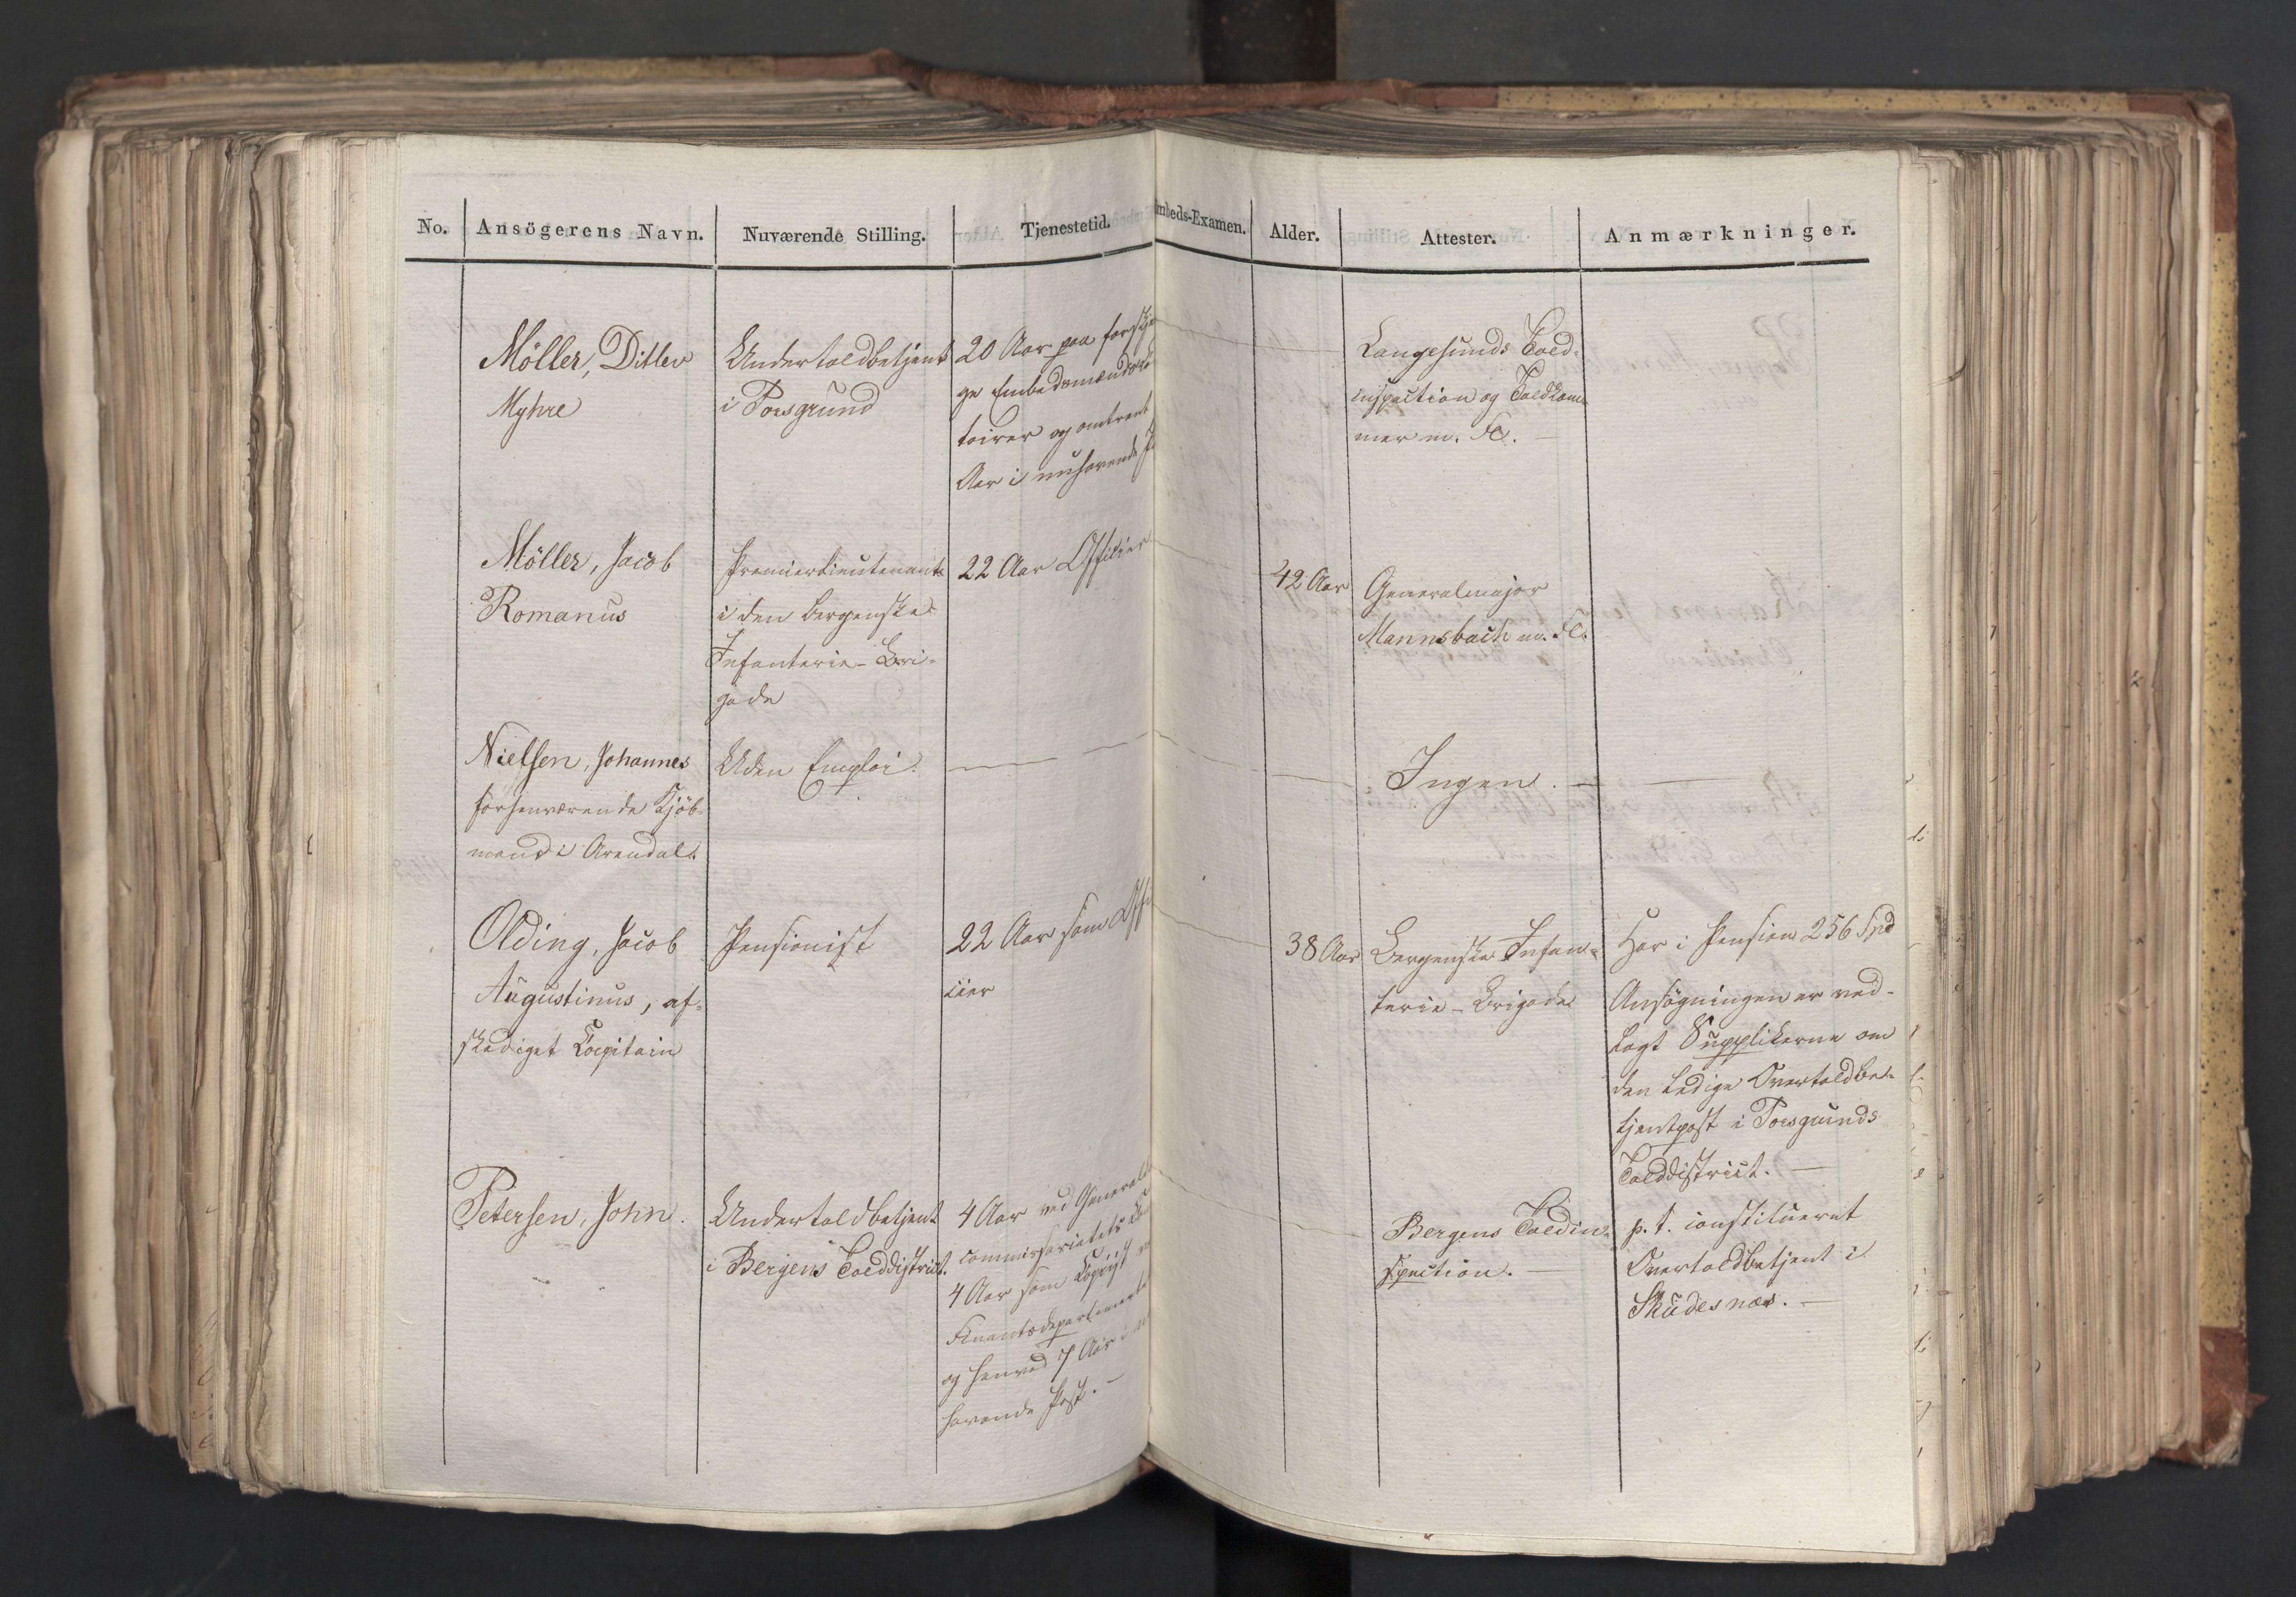 No. Ansögerens Navn. Nuværende Stilling. Tjenestetid. mbeds-Examen. Alder. Attester. Anmærkninger.
Möller, Ditlev
Myhre
Undertoldbetjent
i Porsgrund
20 Aar paa forskje
ge Embedsmænds
toirer og omtrent
Aar i nuhavende
Langesunds Told-
inspection og Toldkam
mer m. Fl. —
Möller, Jacob
Romanus
Premierlieutenant
i den bergenske
Infanterie-Bri-
gade
22 Aar Officier
42 Aar
Generalmajor
Mannsbach m. Fl.
Nielsen, Johannes
forhenværende Kjöb-
mand i Arendal.
Uden Emploi.
—
Ingen. —
—
Olding, Jacob
Augustinus, af-
skediget Capitain
Pensionist
22 Aar som Offi
cier
38 Aar
Bergenske Infan-
terie-Brigade
Har i Pension 256 Spd
Ansögningen er ved-
lagt Supplikerne om
den ledige Overtoldbe-
tjentpost i Porsgrunds
Tolddistrict. —
Petersen, John.
Undertoldbetjent
i Bergens Tolddistrict.
4 Aar ved General
commissariatets
4 Aar som Copiist
Finantsdepartement
og henved 7 Aar i
havende Post. —
Bergens Toldin-
spection. —
p. t. constitueret
Overtoldbetjent i
Skudesnæs. —